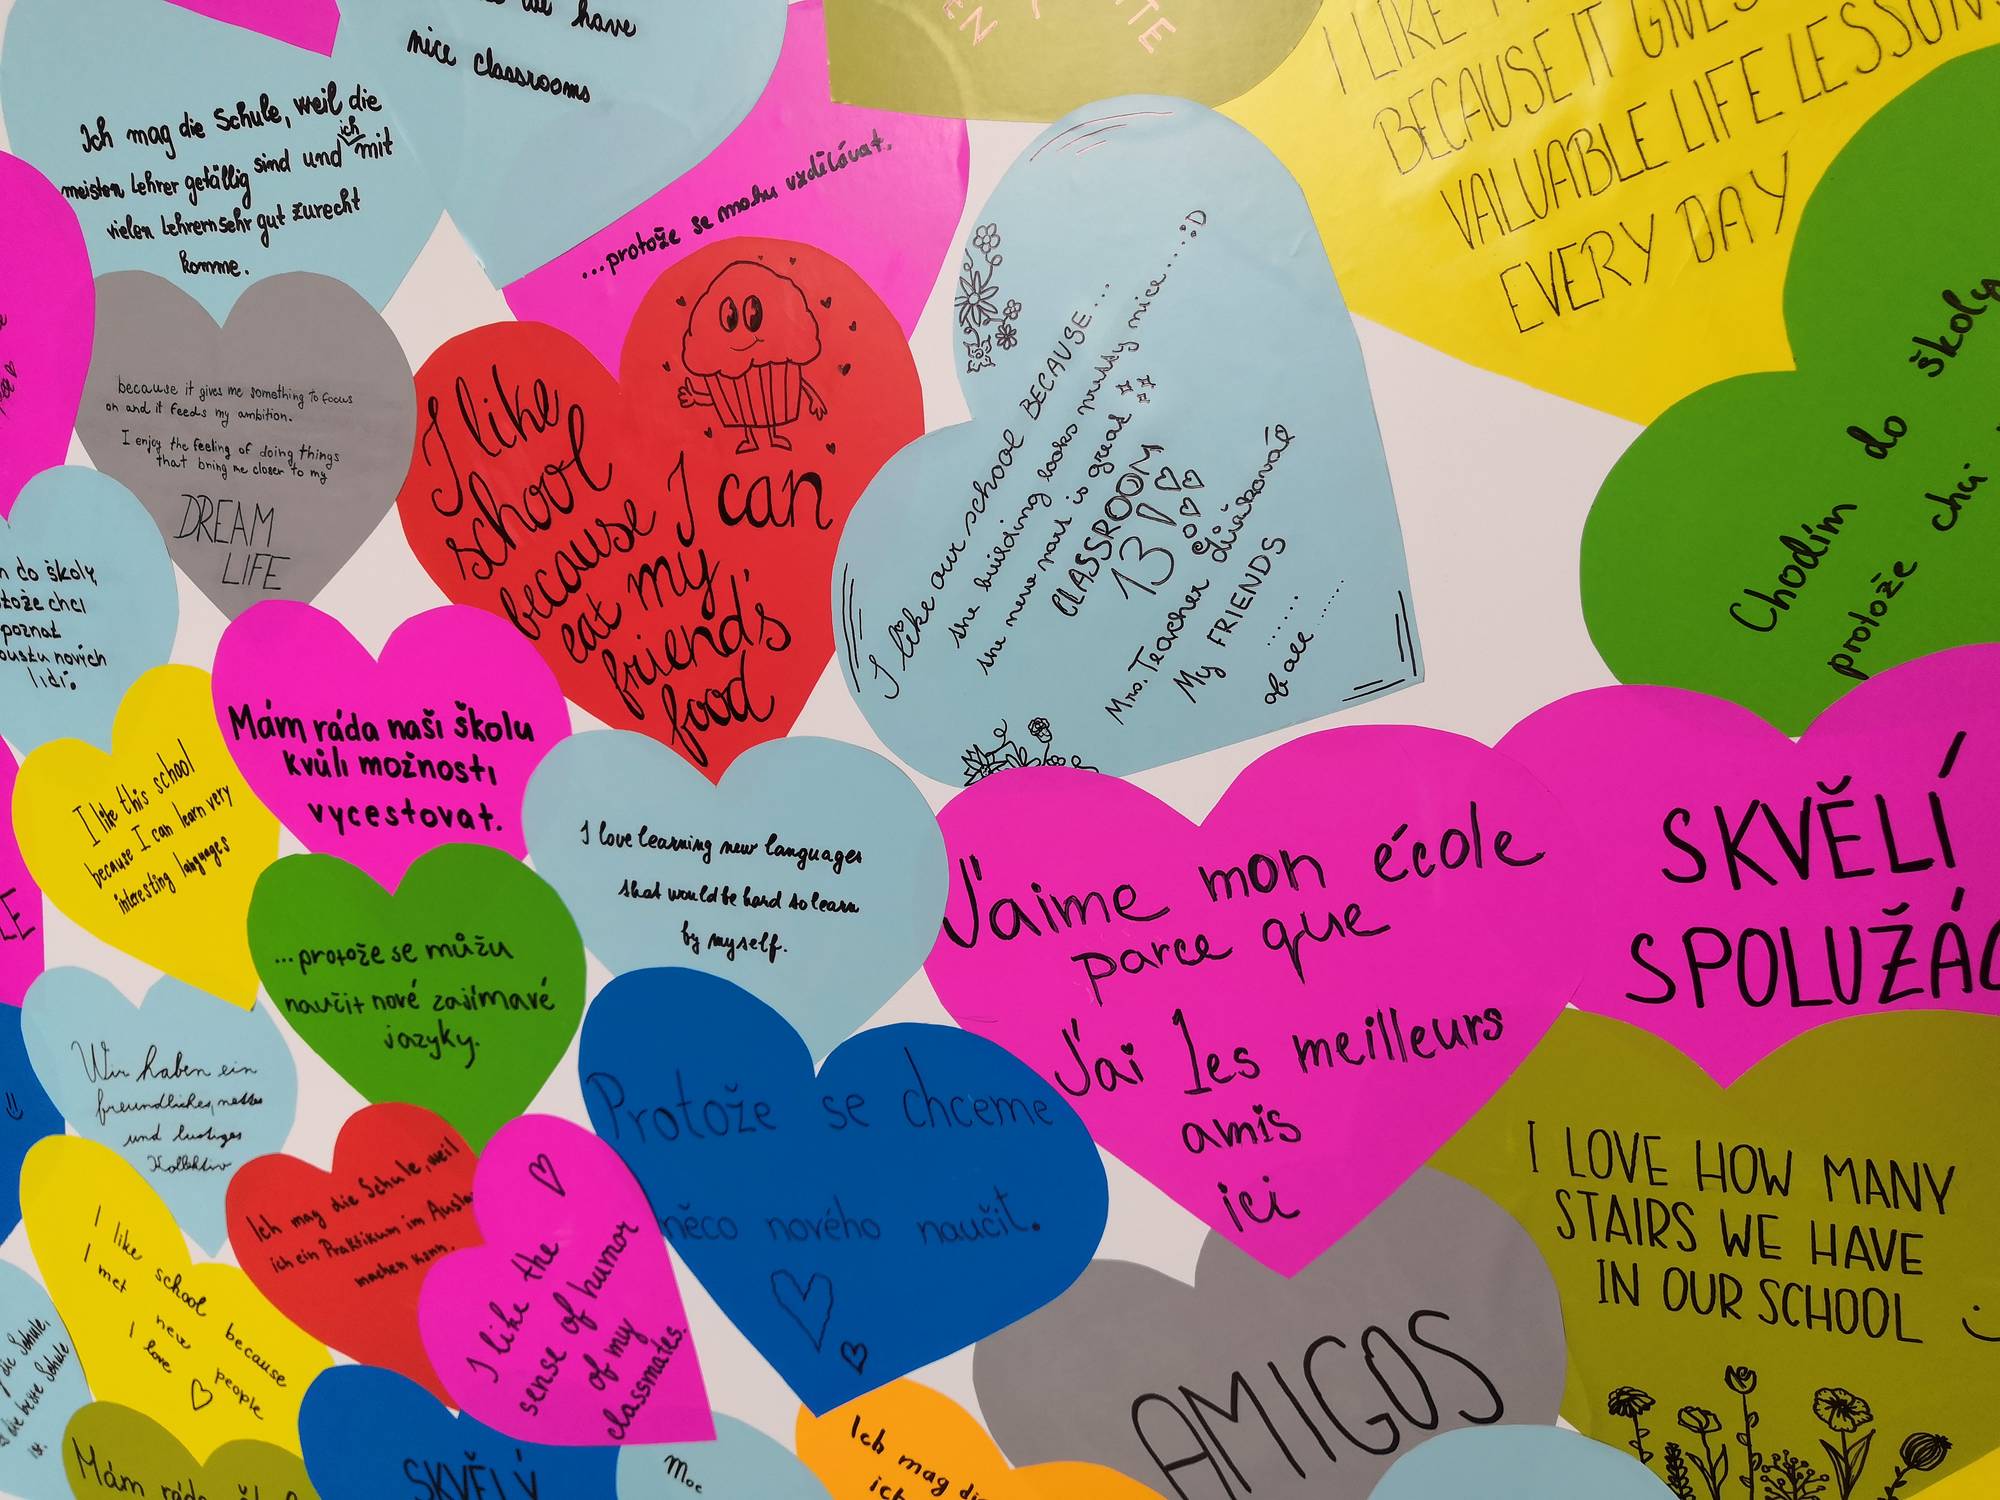 have
nice classrooms
Ich mag die Schule, weil die
meisten Lehrer gefällig sind und ich mit
vielen Lehrern sehr gut zurecht
komme.
...protože se mohu vzdělávat.
I LIKE
BECAUSE IT GIVES
VALUABLE LIFE LESSONS
EVERY DAY
because it gives me something to focus
on and it feeds my ambition.
I enjoy the feeling of doing things
that bring me closer to my
DREAM
LIFE
I like
school
because I can
eat my
friend's
food
I like our school BECAUSE...
the building looks pretty nice....:D
the new part is great
CLASSROOM
13!
Mrs. Teacher
My FRIENDS
.......
Chodím do školy
protože chci
do školy,
chci
poznat
nových
lidí.
Mám ráda naši školu
kvůli možnosti
vycestovat.
I like this school
because I can learn very
interesting languages
I love learning new languages
that would be hard to learn
by myself.
J'aime mon école
parce que
J'ai les meilleurs
amis
ici
SKVĚLÍ
...protože se můžu
naučit nové zajímavé
jazyky.
Wir haben ein
freundliches, nettes
und lustiges
Kollektiv
Protože se chceme
něco nového naučit.
I LOVE HOW MANY
STAIRS WE HAVE
IN OUR SCHOOL :)
Ich mag die Schule, weil
ich ein Praktikum im
machen kann.
I like school because
I met new people
I love
I like the
sense of humor
of my
classmates.
AMIGOS
die Schule,
die beste Schule
ist.
Mám ráda
SKVĚLÝ
Moc
Ich mag die
ich